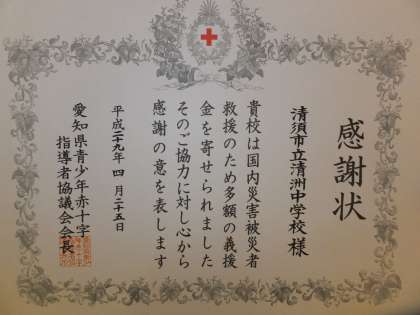 感謝状
清須市立清洲中学校 様
貴校は国内災害被災者
救援のため多額の義援
金を寄せられました
そのご協力に対し心から
感謝の意を表します
平成二十九年 四月二十五日
愛知県青少年赤十字
指導者協議会会長